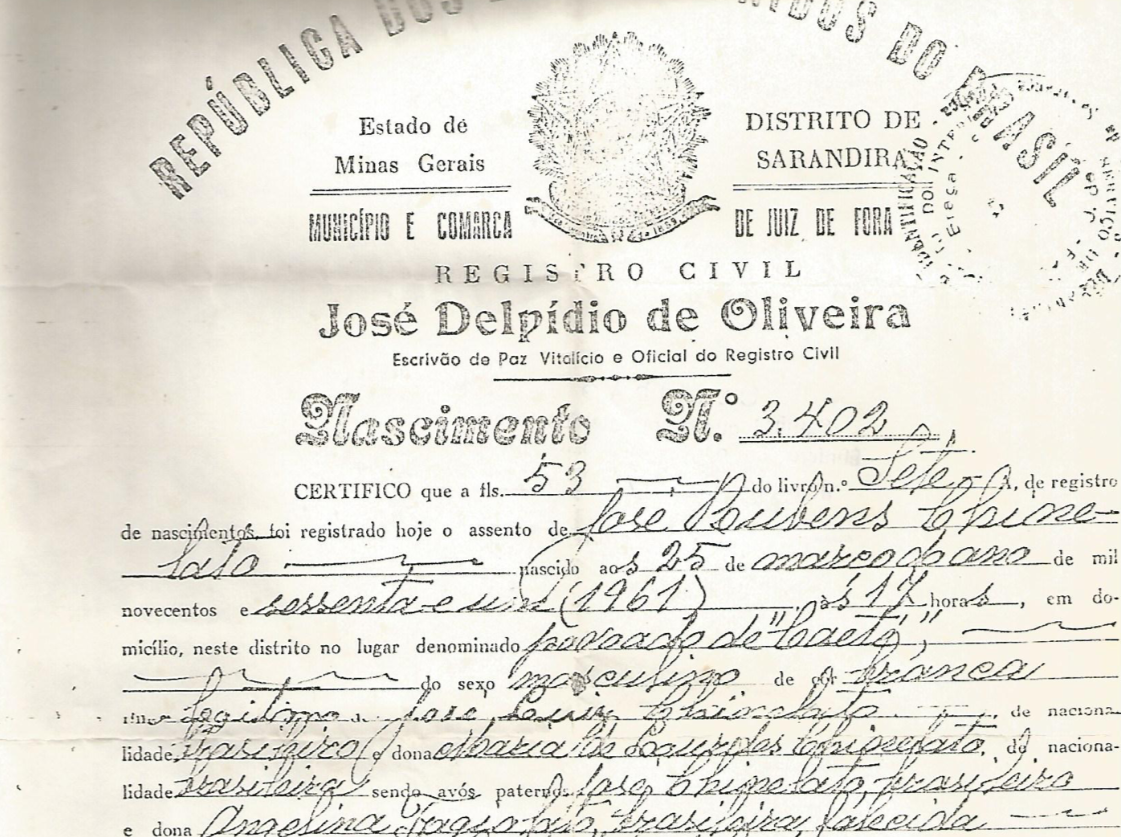 REPÚBLICA DOS ESTADOS UNIDOS DO BRASIL
Estado de
Minas Gerais
DISTRITO DE
SARANDIRA
MUNICÍPIO E COMARCA
DE JUIZ DE FORA
REGISTRO CIVIL
José Delpídio de Oliveira
Escrivão de Paz Vitalício e Oficial do Registro Civil
Nascimento N.º 3.402
CERTIFICO que a fls. 53 do livro n.º Sete - A, de registro
de nascimentos, foi registrado hoje o assento de José Rubens Chine-
lato nascido aos 25 de março do ano de mil
novecentos e sessenta e um (1961) às 17 horas, em do-
micílio, neste distrito no lugar denominado povoado de "Caeté",
do sexo masculino de côr branca
legítimo José Luiz Chinelato de naciona-
lidade brasileiro e dona Maria de Lourdes Chinelato, de naciona-
lidade brasileira sendo avós paternos José Chinelato, brasileiro
e dona Angelina brasileira, falecida